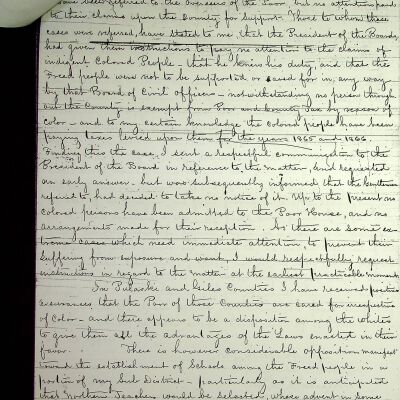 have been referred to the Overseers of the Poor but no attention paid
to their claims upon the County for support. Those to whom these
cases were referred, have stated to me that the President of the Board,
had given them instructions to pay no attention to the claims of
indigent Colored People - that he knew his duty, and that the
Freed people were not to be supported or cared for in any way
by that Board of Civil officers - notwithstanding no person through-
out the County is exempt from Poor and County tax by reason of
color - and to my certain knowledge the Colored people have been
paying taxes levied upon them for the years 1865 and 1866.
Finding this the case, I sent a respectful communication to the
President of the Board in reference to the matter, and requested
an early answer - but was subsequently informed that the Gentleman
referred to, had decided to take no notice of it. Up to the present no
colored persons have been admitted to the Poor House, and no
arrangements made for their reception. As there are some ex-
treme cases which need immediate attention, to prevent their
suffering from exposure and want, I would respectfully request
instructions in regard to the matter at the earliest practicable moment.
In Pulaski and Giles Counties I have received positive
assurances that the Poor of those Counties are cared for irrespective
of Color - and there appears to be a disposition among the whites
to give them all the advantages of the Laws enacted in their
favor. There is however considerable opposition manifest
toward the establishment of Schools among the Freed people in a
portion of my Sub District - particularly as it is anticipated
that Northern Teachers would be selected, whose advent in some